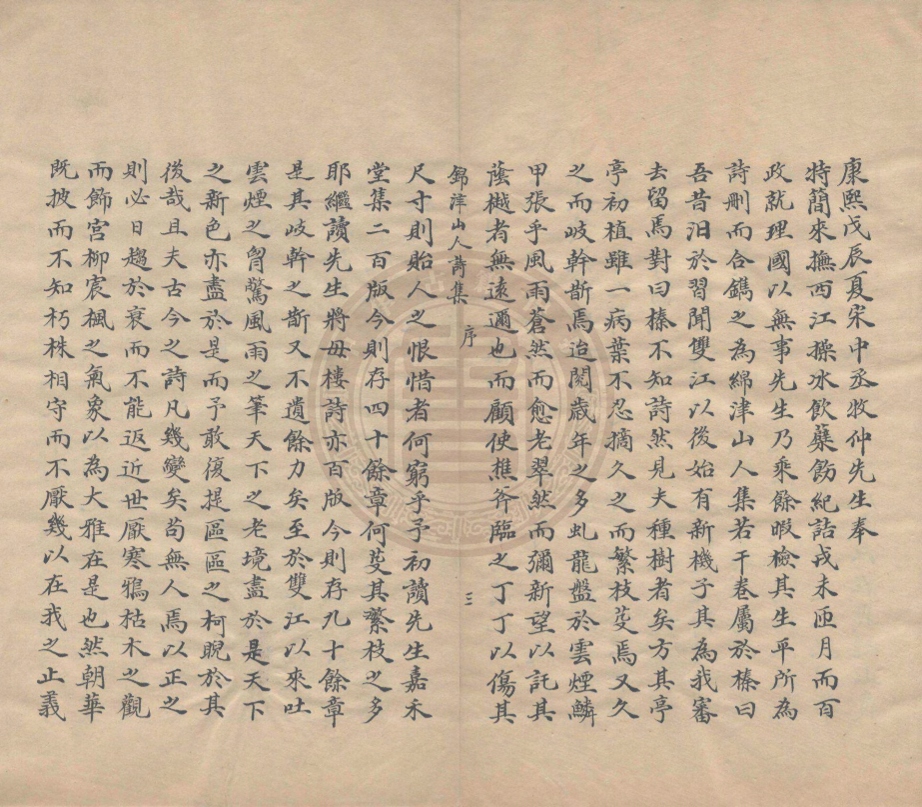 康熙戊辰夏宋中丞牧仲先生奉
特簡來撫西江操冰飲蘗飭紀詰戎未匝月而百
政就理國以無事先生乃乘餘暇檢其生平所為
詩刪而合鐫之為綿津山人集若干卷屬於榛曰
吾昔汨於習聞雙江以後始有新機子其為我審
去留焉對曰榛不知詩然見夫種樹者矣方其亭
亭初植雖一病葉不忍摘久之而繁枝芟焉又久
之而岐幹斮焉迨閱歲年之多虬龍盤於雲煙鱗
甲張乎風雨蒼然而愈老翠然而彌新望以託其
蔭樾者無遠邇也而顧使樵斧臨之丁丁以傷其
錦津山人詩集 序 三
尺寸則貽人之恨惜者何窮乎予初讀先生嘉禾
堂集二百版今則存四十餘章何芟其繁枝之多
耶繼讀先生將毋樓詩亦百版今則存九十餘章
是其岐幹之斮又不遺餘力矣至於雙江以來吐
雲煙之胷驚風雨之筆天下之老境盡於是天下
之新色亦盡於是而予敢復提區區之柯睨於其
後哉且夫古今之詩凡幾變矣苟無人焉以正之
則必日趨於衰而不能返近世厭寒鴉枯木之觀
而飾宮柳宸楓之氣象以為大雅在是也然朝華
既披而不知朽株相守而不厭幾以在我之止義